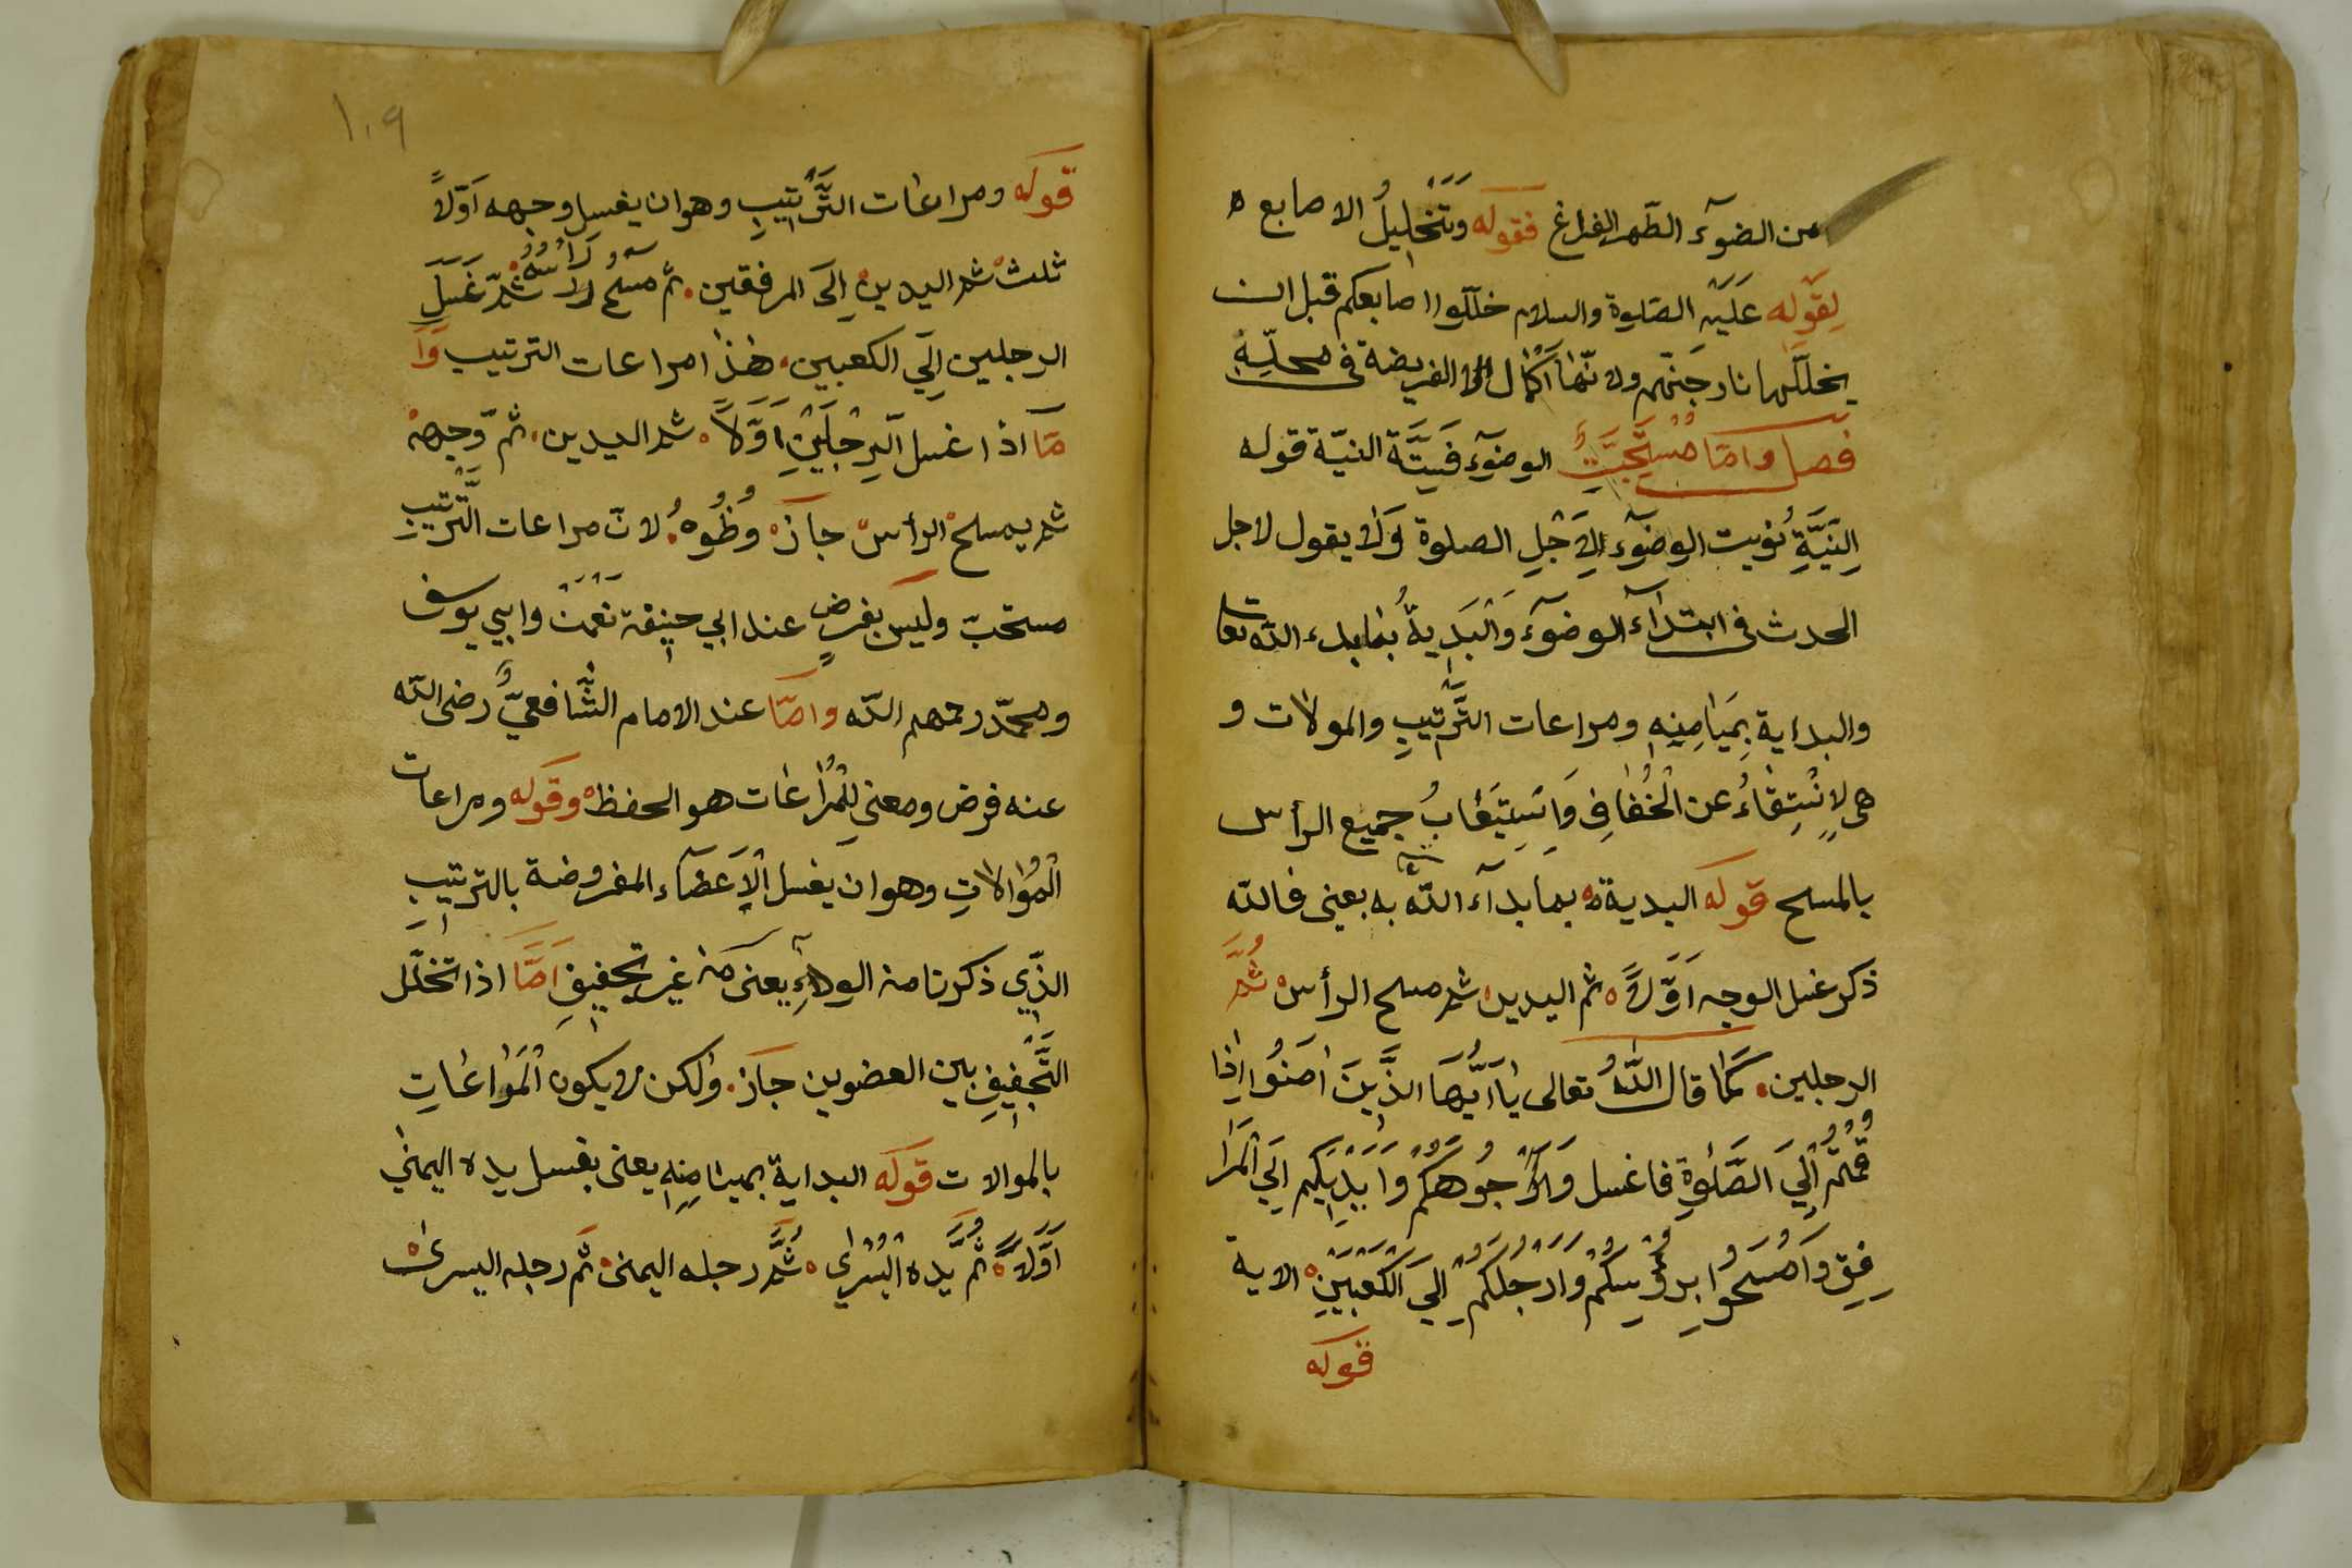 عن الضوء الطهر الفراغ فقوله وتخليل الاصابع ه
لقوله عليه الصلوة والسلام خللوا اصابعكم قبل ان
يخللها نار جهنم ولانها اكمال الفريضة فى محله
فصل واما مستحبت الوضوء فستة النية قوله
النية نويت الوضوء لاجل الصلوة ولا يقول لاجل
الحدث فى ابتداء الوضوء والبدية بما بدء الله تعا
والبداية بميامنه ومراعات الترتيب والمولات و
هى لانتقاء عن الخفاف واستيعاب جميع الرأس
بالمسح قوله البدية بما بداء الله به يعنى فالله
ذكر غسل الوجه اولا ثم اليدين ثم مسح الرأس ثم
الرجلين كما قال الله تعالى يا ايها الذين امنوا اذا
قمتم الى الصلوة فاغسل وا وجوهكم وايديكم الى المرا
فق وامسحوا برؤسكم وارجلكم الى الكعبين الاية
قوله
١٠٩
قوله ومراعات الترتيب وهو ان يغسل وجهه اولا
ثلث ثم اليدين الى المرفقين ثم مسح رأسه ثم غسل
الرجلين الى الكعبين هذا مراعات الترتيب وا
ما اذا غسل الرجلين اولا ثم اليدين ثم وجهه
ثم يمسح الرأس جاز وظوه لان مراعات الترتيب
مستحب وليس بفرض عند ابي حنيفة نعمن وابي يوسف
ومحمد رحمهم الله واما عند الامام الشافعي رضى الله
عنه فرض ومعنى للمراعات هو الحفظ وقوله ومراعات
الموالات وهو ان يغسل الاعضاء المفروضة بالترتيب
الذي ذكرنا من الولاء يعنى من غير تجفيف اما اذا تخلل
التجفيف بين العضوين جاز ولكن لا يكون المواعات
بالموالات قوله البداية بميامنه يعنى بغسل يده اليمنى
اولا ثم يده اليسرى ثم رجله اليمنى ثم رجله اليسرى